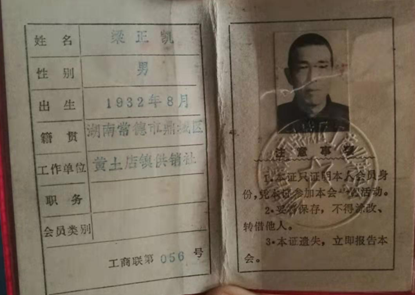 姓名 梁正凯
性别 男
出生 1932年8月
籍贯 湖南常德市鼎城区
工作单位 黄土店镇供销社
职务
会员类别
工商联第 056 号
注意事项
1·本证只证明本人会员身
份，凭本证参加本会 活动。
2·妥善保存，不得涂改、
转借他人。
3·本证遗失，立即报告本
会。